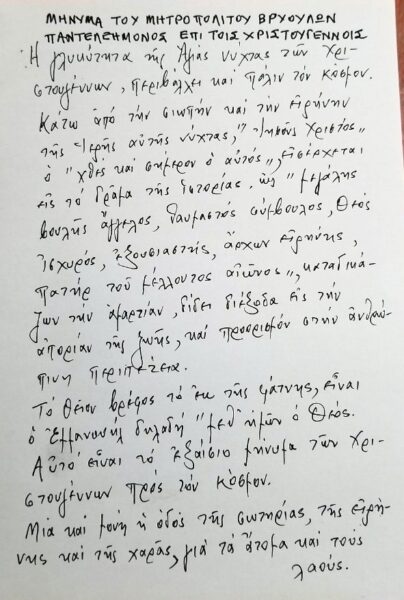 ΜΗΝΥΜΑ ΤΟΥ ΜΗΤΡΟΠΟΛΙΤΟΥ ΒΡΥΟΥΛΩΝ
ΠΑΝΤΕΛΕΗΜΟΝΟΣ ΕΠΙ ΤΟΙΣ ΧΡΙΣΤΟΥΓΕΝΝΟΙΣ
Ἡ γλυκύτητα τῆς Ἁγίας νύχτας τῶν Χρι-
στουγέννων, περιβάλλει καί πάλιν τόν κόσμον.
Κάτω ἀπό τήν σιωπήν καί τήν εἰρήνην
τῆς Ἱερῆς αὐτῆς νύχτας, "Ἰησοῦς Χριστός"
ὁ "χθές καί σήμερον ὁ αὐτός", εἰσέρχεται
εἰς τό δρᾶμα τῆς ἱστορίας, ὡς "μεγάλης
βουλῆς ἄγγελος, θαυμαστός σύμβουλος, Θεός
ἰσχυρός, ἐξουσιαστής, ἄρχων εἰρήνης,
πατήρ τοῦ μέλλοντος αἰῶνος", καταδικά-
ζων τήν ἁμαρτίαν, δίδει διέξοδα εἰς τήν
ἀπορίαν τῆς ζωῆς, καί προορισμόν στήν ἀνθρώ-
πινη περιπέτεια.
Τό θεῖον βρέφος τό ἐκ τῆς φάτνης, εἶναι
ὁ Ἐμμανουήλ δηλαδή "μεθ' ἡμῶν ὁ Θεός.
Αὐτό εἶναι τό ἐξαίσιο μήνυμα τῶν Χρι-
στουγέννων πρός τόν κόσμον.
Μία καί μόνη ἡ ὁδός τῆς σωτηρίας, τῆς εἰρή-
νης καί τῆς χαρᾶς, γιά τά ἄτομα καί τούς
λαούς.